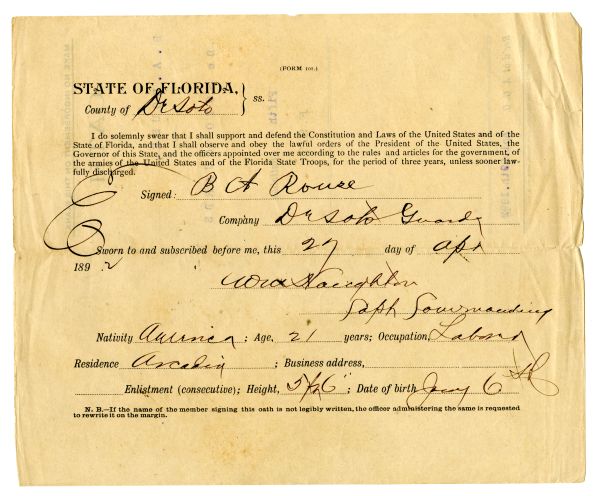 (FORM 100.)
STATE OF FLORIDA,
County of DeSoto ss.
I do solemnly swear that I shall support and defend the Constitution and Laws of the United States and of the
State of Florida, and that I shall observe and obey the lawful orders of the President of the United States, the
Governor of this State, and the officers appointed over me according to the rules and articles for the government, of
the armies of the United States and of the Florida State Troops, for the period of three years, unless sooner law-
fully discharged.
Signed: B A Rouse
Company DeSoto Guards
Sworn to and subscribed before me, this 27 day of apr
1892
Naughton
Capt Commanding
Nativity America; Age, 21 years; Occupation, Labor
Residence Arcadia; Business address,
Enlistment (consecutive); Height, 5/6"; Date of birth Jany 6
N. B.—If the name of the member signing this oath is not legibly written, the officer administering the same is requested
to rewrite it on the margin.